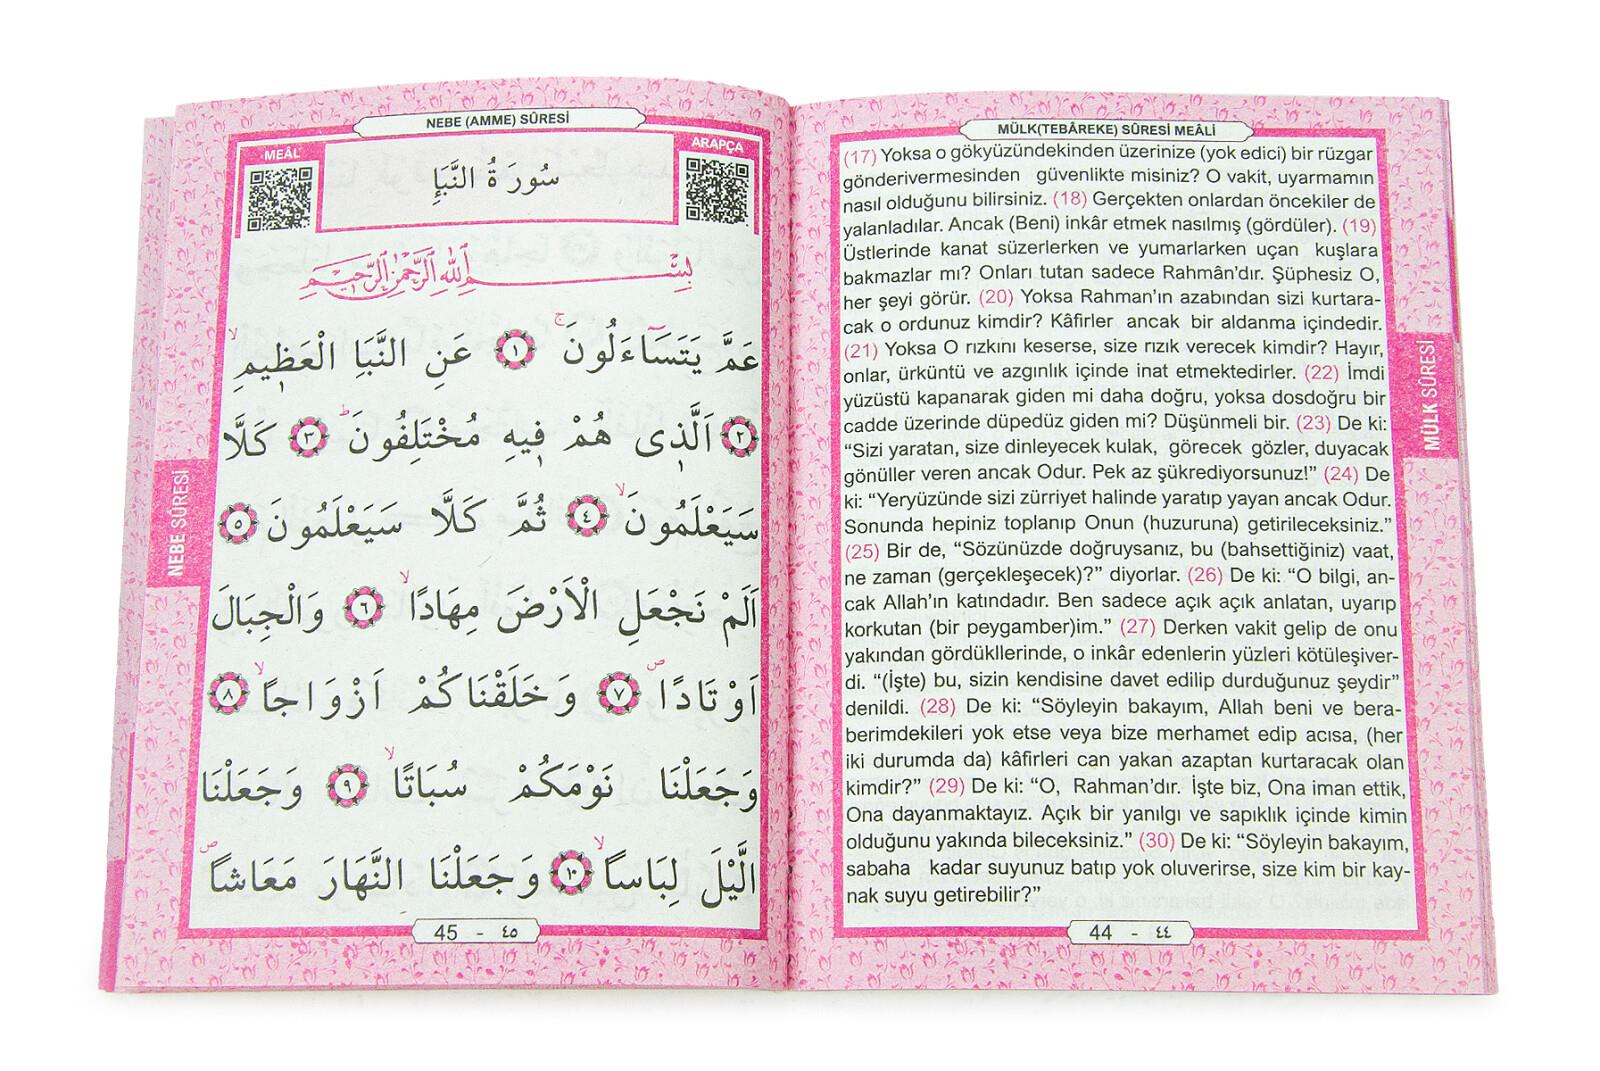 MÜLK(TEBÂREKE) SÛRESİ MEÂLİ
(17) Yoksa o gökyüzündekinden üzerinize (yok edici) bir rüzgar
gönderivermesinden güvenlikte misiniz? O vakit, uyarmamın
nasıl olduğunu bilirsiniz. (18) Gerçekten onlardan öncekiler de
yalanladılar. Ancak (Beni) inkâr etmek nasılmış (gördüler). (19)
Üstlerinde kanat süzerlerken ve yumarlarken uçan kuşlara
bakmazlar mı? Onları tutan sadece Rahmân’dır. Şüphesiz O,
her şeyi görür. (20) Yoksa Rahman’ın azabından sizi kurtara-
cak o ordunuz kimdir? Kâfirler ancak bir aldanma içindedir.
(21) Yoksa O rızkını keserse, size rızık verecek kimdir? Hayır,
onlar, ürküntü ve azgınlık içinde inat etmektedirler. (22) İmdi
yüzüstü kapanarak giden mi daha doğru, yoksa dosdoğru bir
cadde üzerinde düpedüz giden mi? Düşünmeli bir. (23) De ki:
“Sizi yaratan, size dinleyecek kulak, görecek gözler, duyacak
gönüller veren ancak Odur. Pek az şükrediyorsunuz!” (24) De
ki: “Yeryüzünde sizi zürriyet halinde yaratıp yayan ancak Odur.
Sonunda hepiniz toplanıp Onun (huzuruna) getirileceksiniz.”
(25) Bir de, “Sözünüzde doğruysanız, bu (bahsettiğiniz) vaat,
ne zaman (gerçekleşecek)?” diyorlar. (26) De ki: “O bilgi, an-
cak Allah’ın katındadır. Ben sadece açık açık anlatan, uyarıp
korkutan (bir peygamber)im.” (27) Derken vakit gelip de onu
yakından gördükllerinde, o inkâr edenlerin yüzleri kötüleşiver-
di. “(İşte) bu, sizin kendisine davet edilip durduğunuz şeydir”
denildi. (28) De ki: “Söyleyin bakayım, Allah beni ve bera-
berimdekileri yok etse veya bize merhamet edip acısa, (her
iki durumda da) kâfirleri can yakan azaptan kurtaracak olan
kimdir?” (29) De ki: “O, Rahman’dır. İşte biz, Ona iman ettik,
Ona dayanmaktayız. Açık bir yanılgı ve sapıklık içinde kimin
olduğunu yakında bileceksiniz.” (30) De ki: “Söyleyin bakayım,
sabaha kadar suyunuz batıp yok oluverirse, size kim bir kay-
nak suyu getirebilir?”
44 - ٤٤
MÜLK SÛRESİ
NEBE (AMME) SÛRESİ
MEÂL
ARAPÇA
سُورَةُ النَّبَإِ
بِسْمِ اللّٰهِ الرَّحْمٰنِ الرَّحِيمِ
عَمَّ يَتَسَآءَلُونَۚ ١ عَنِ النَّبَإِ الْعَظِيمِۙ
٢ اَلَّذِى هُمْ فِيهِ مُخْتَلِفُونَۜ ٣ كَلَّا
سَيَعْلَمُونَۙ ٤ ثُمَّ كَلَّا سَيَعْلَمُونَ ٥
اَلَمْ نَجْعَلِ الْاَرْضَ مِهَادًاۙ ٦ وَالْجِبَالَ
اَوْتَادًاۖ ٧ وَخَلَقْنَاكُمْ اَزْوَاجًاۙ ٨
وَجَعَلْنَا نَوْمَكُمْ سُبَاتًاۙ ٩ وَجَعَلْنَا
الَّيْلَ لِبَاسًاۙ ١٠ وَجَعَلْنَا النَّهَارَ مَعَاشًاۖ
45 - ٤٥
NEBE SÛRESİ